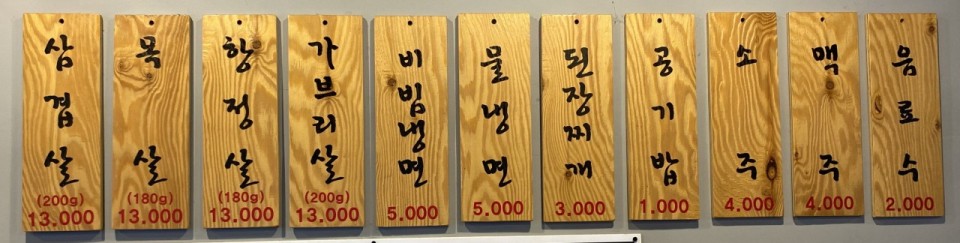 삼겹살
(200g)
13.000
목살
(180g)
13.000
항정살
(180g)
13.000
가브리살
(200g)
13.000
비빔냉면
5.000
물냉면
5.000
된장찌개
3.000
공기밥
1.000
소주
4.000
맥주
4.000
음료수
2.000